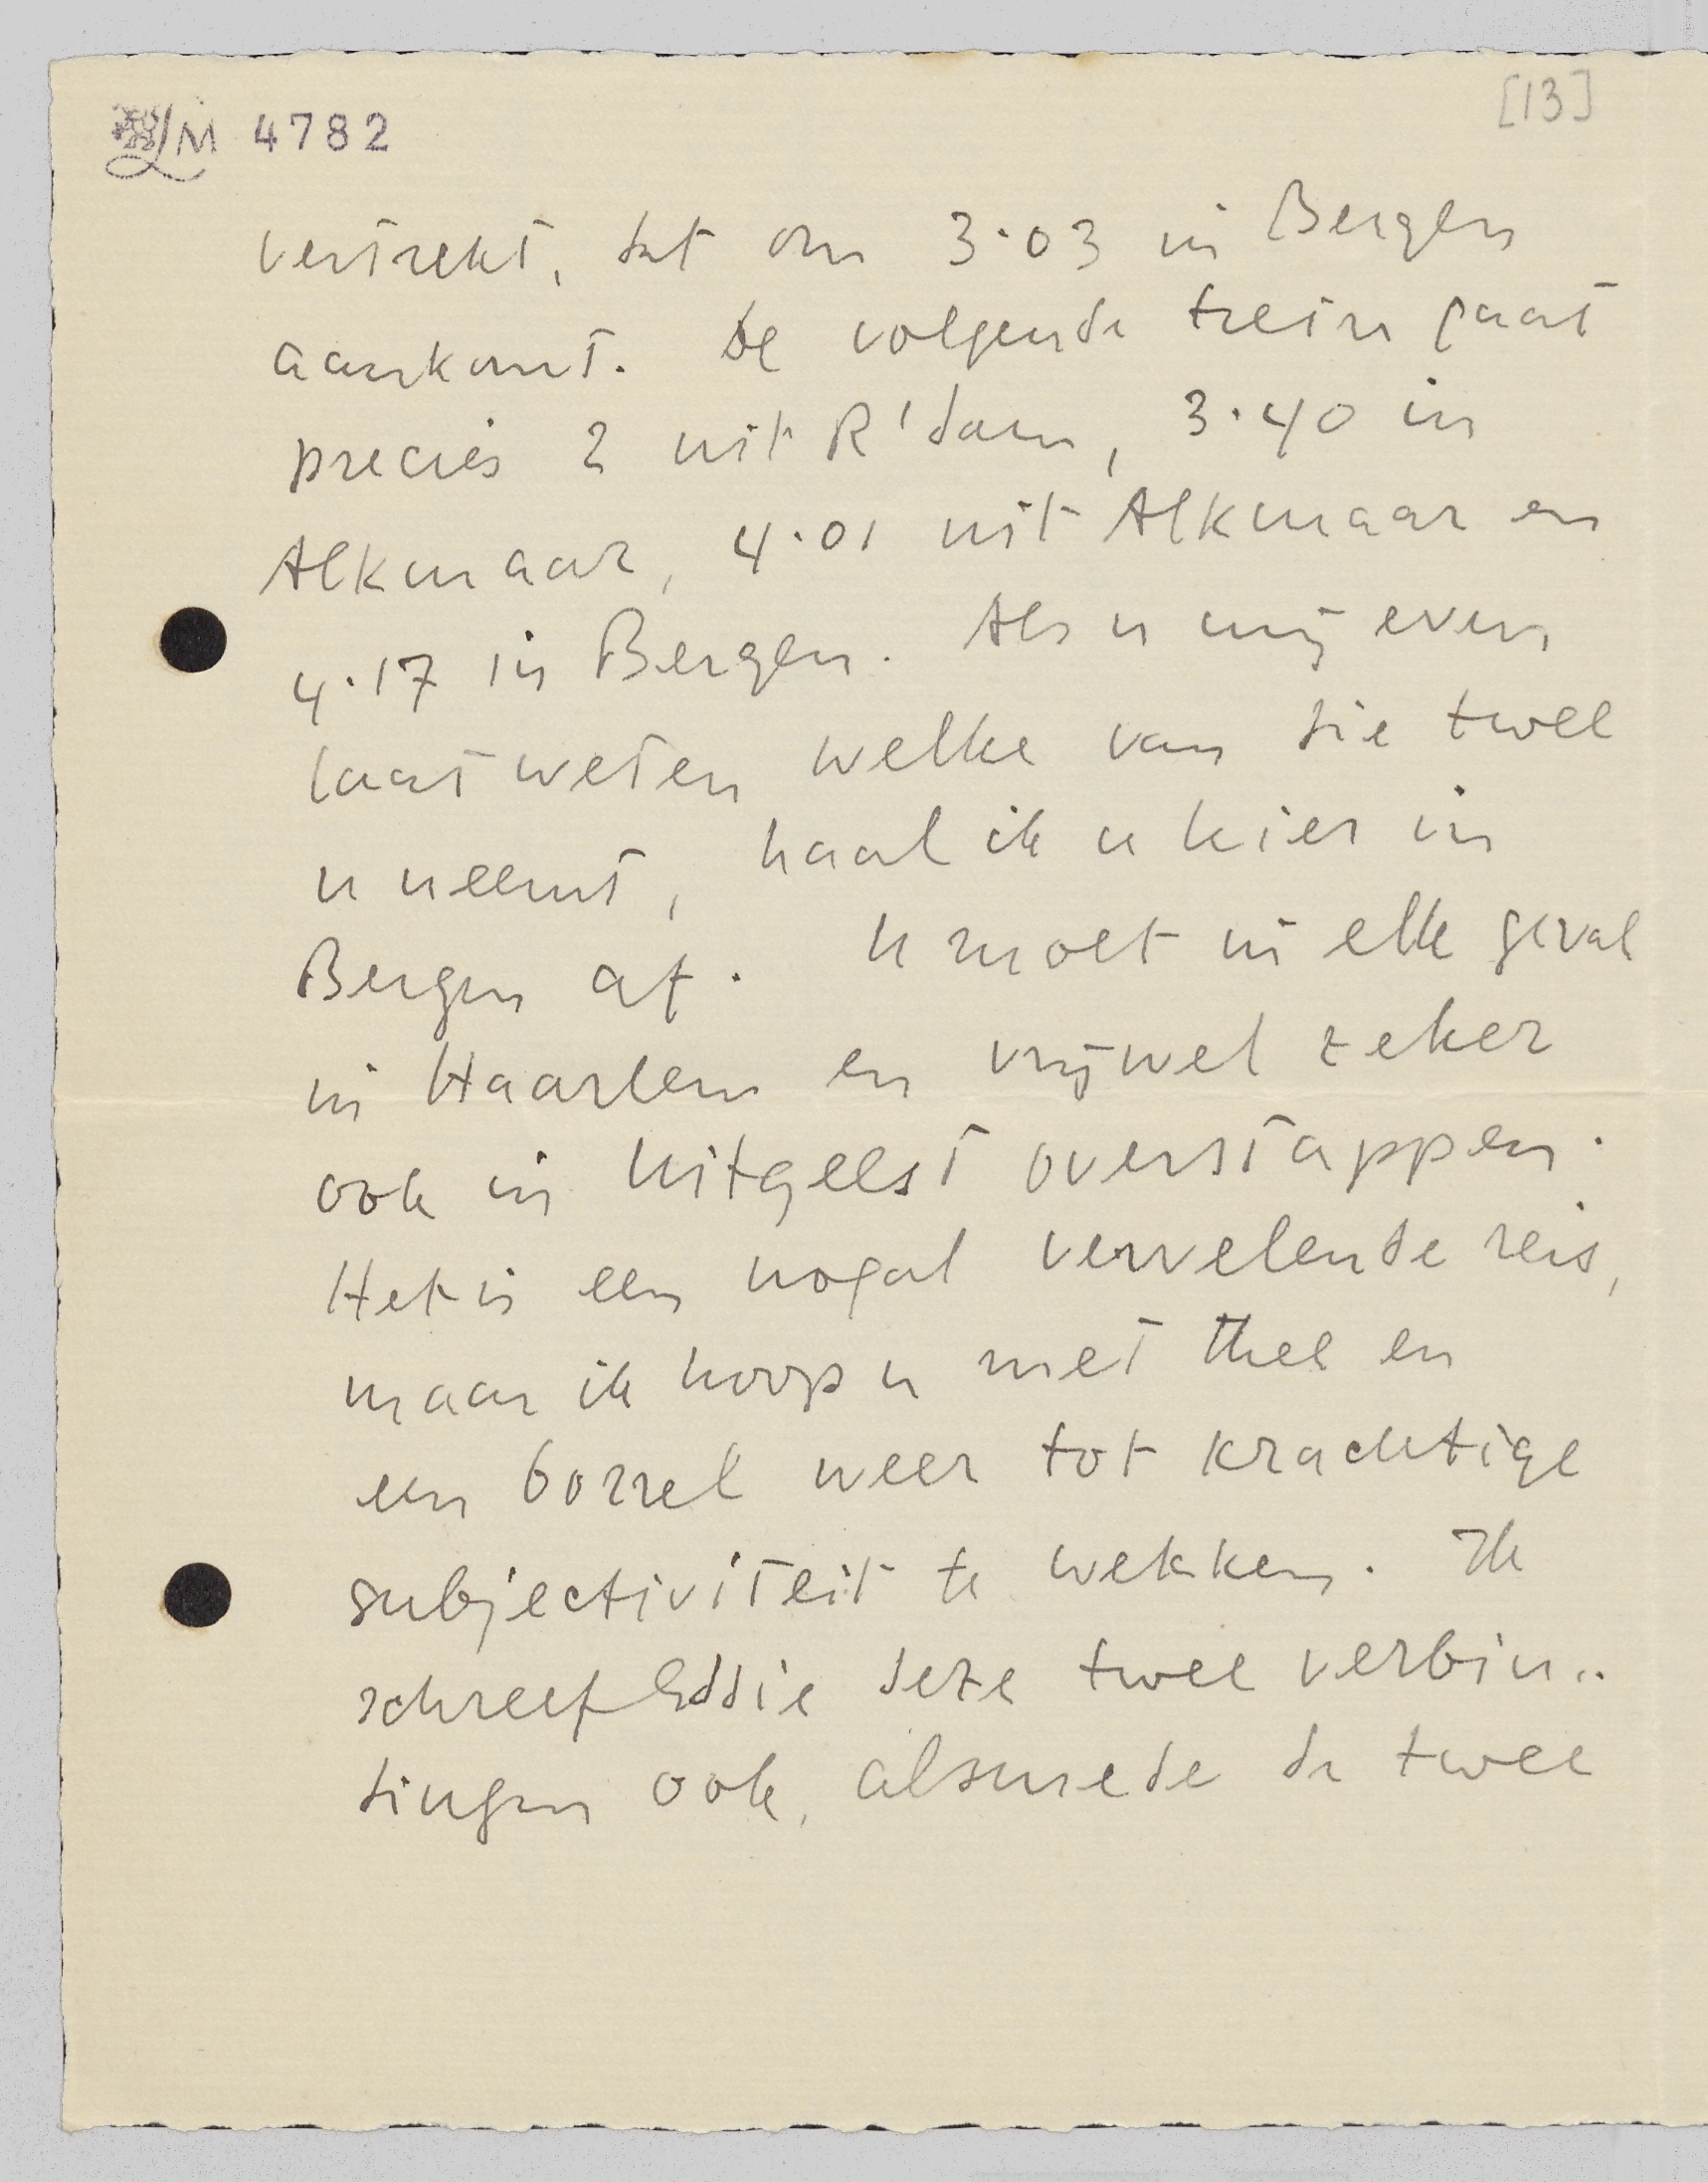 LM 4782
[13]
vertrekt, dat om 3.03 in Bergen
aankomt. De volgende trein gaat
precies 2 uit R'dam, 3.40 in
Alkmaar, 4.01 uit Alkmaar en
4.17 in Bergen. Als u mij even
laat weten welke van die twee
u neemt, haal ik u hier in
Bergen af. U moet in elk geval
in Haarlem en vrijwel zeker
ook in Uitgeest overstappen.
Het is een nogal vervelende reis,
maar ik hoop u met thee en
een borrel weer tot krachtige
subjectiviteit te wekken. Ik
schreef Eddie deze twee verbin-
dingen ook, alsmede de twee